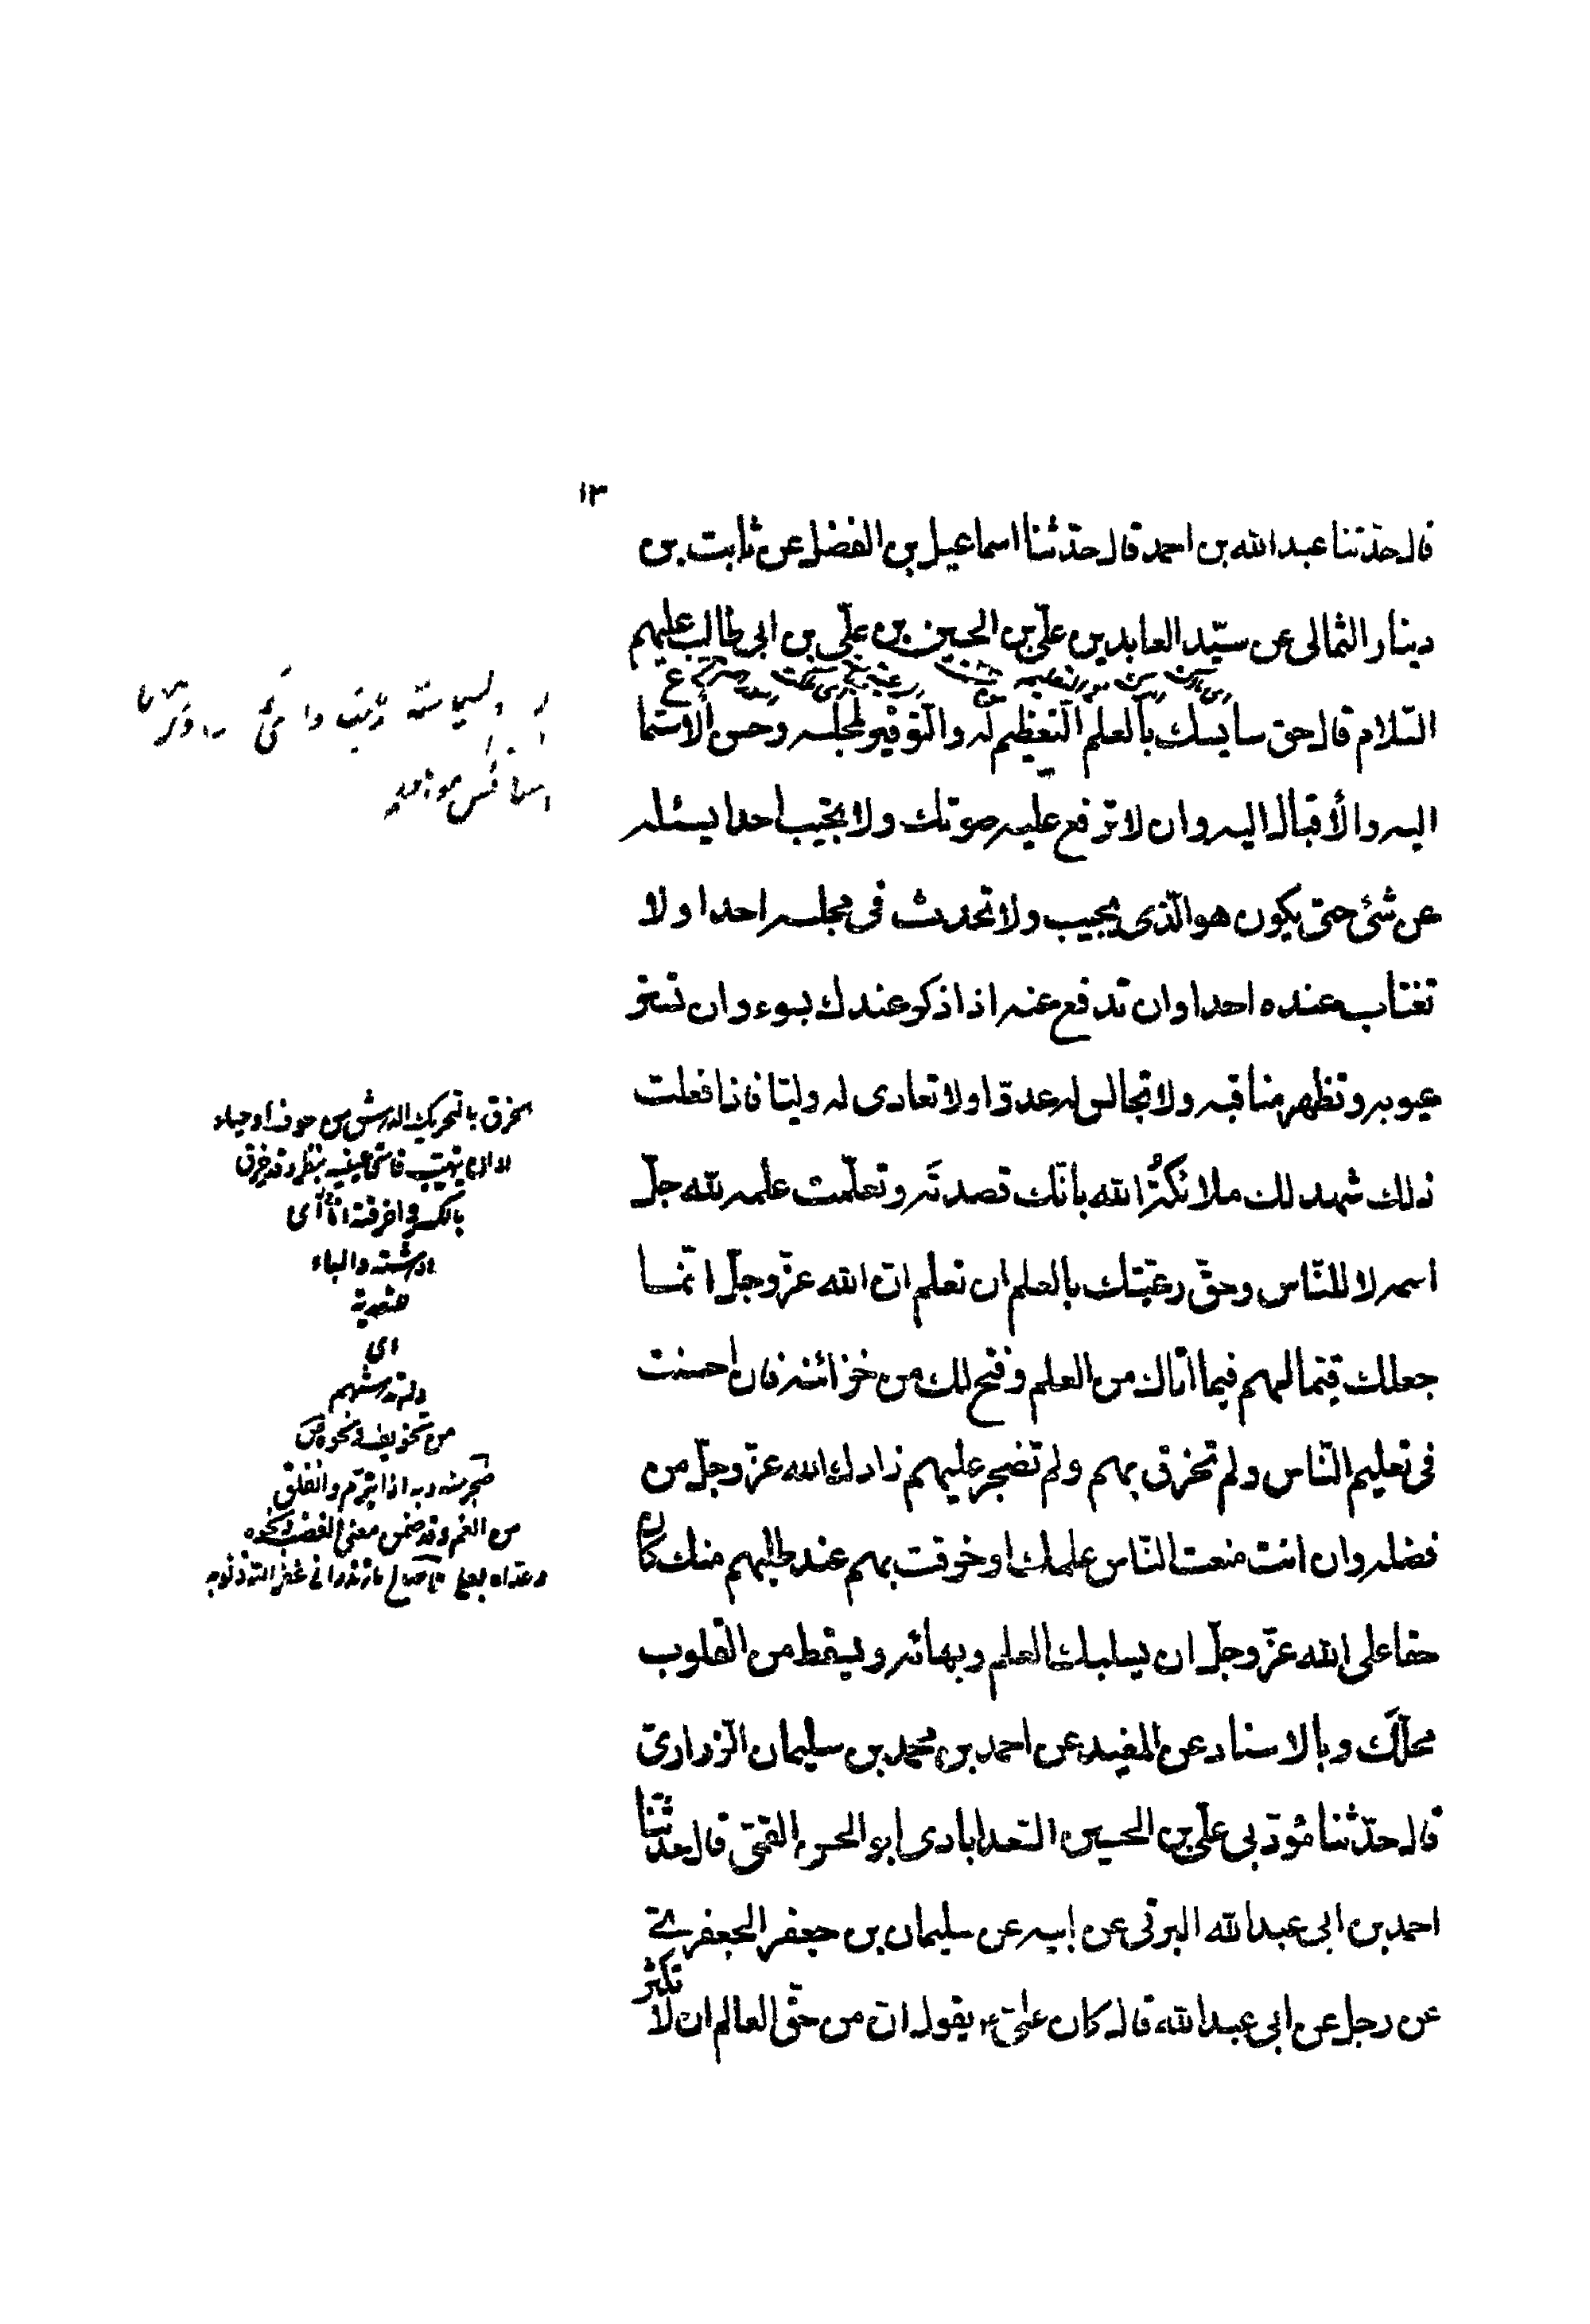 ١٣
قال حدّثنا عبد الله بن احمد قال حدّثنا اسماعيل بن الفضل عن ثابت بن
دينار الثمالى عن سيّد العابدين علّى بن الحسين بن علّى بن ابى طالب عليهم
السّلام قال حق سايسك بالعلم التّعظيم له والتّوقير لمجلسه وحسن الاستما
ع
اليه والأقبال اليه وان لا ترفع عليه صوتك ولا تجيب احدا يسئله
عن شئ حتى يكون هو الّذى يجيب ولا تحدث فى مجلسه احدا ولا
تغتاب عنده احدا وان تدفع عنه اذا ذكر عندك بسوء وان تستر
عيوبه وتظهر مناقبه ولا تجالس له عدوّا ولا تعادى له وليّا فاذا فعلت
ذلك شهد لك ملائكة الله بانّك قصدته وتعلّمت علمه لله جلّ
اسمه لا للنّاس وحقّ رعيّتك بالعلم ان تعلم انّ الله عزّ وجلّ انّما
جعلك قيّما لهم فيما اتاك من العلم وفتح لك من خزائنه فان احسنت
فى تعليم النّاس ولم تخرق بهم ولم تضجر عليهم زادك الله عزّ وجلّ من
فضله وان انت منعت النّاس علمك او خرقت بهم عند طلبهم منك كان
حقا على الله عزّ وجلّ ان يسلبك العلم وبهائه ويسقط من القلوب
محلّك وبالاسناد عن المفيد عن احمد بن محمد بن سليمان الزّرارىّ
قال حدّثنا مؤدّبى علّى بن الحسين السّعدابادى ابو الحسن القمّى قال حدّثنا
احمد بن ابى عبد الله البرقى عن ابيه عن سليمان بن جعفر الجعفرىّ
عن رجل عن ابى عبد الله قال كان علىّ ع يقول انّ من حقّ العالم ان لا تكثر
الخرق بالتحريك الدهش من خوف او حياء
بالكسر واخرقته انا أى
ادهشته والباء
للتعدية
اى
ولم تدهشهم
من تخويف ونحوه ص
ضجر منه وبه اذا تبرّم والقلق
من الغم وقد ضمن معنى الغضب ونحوه